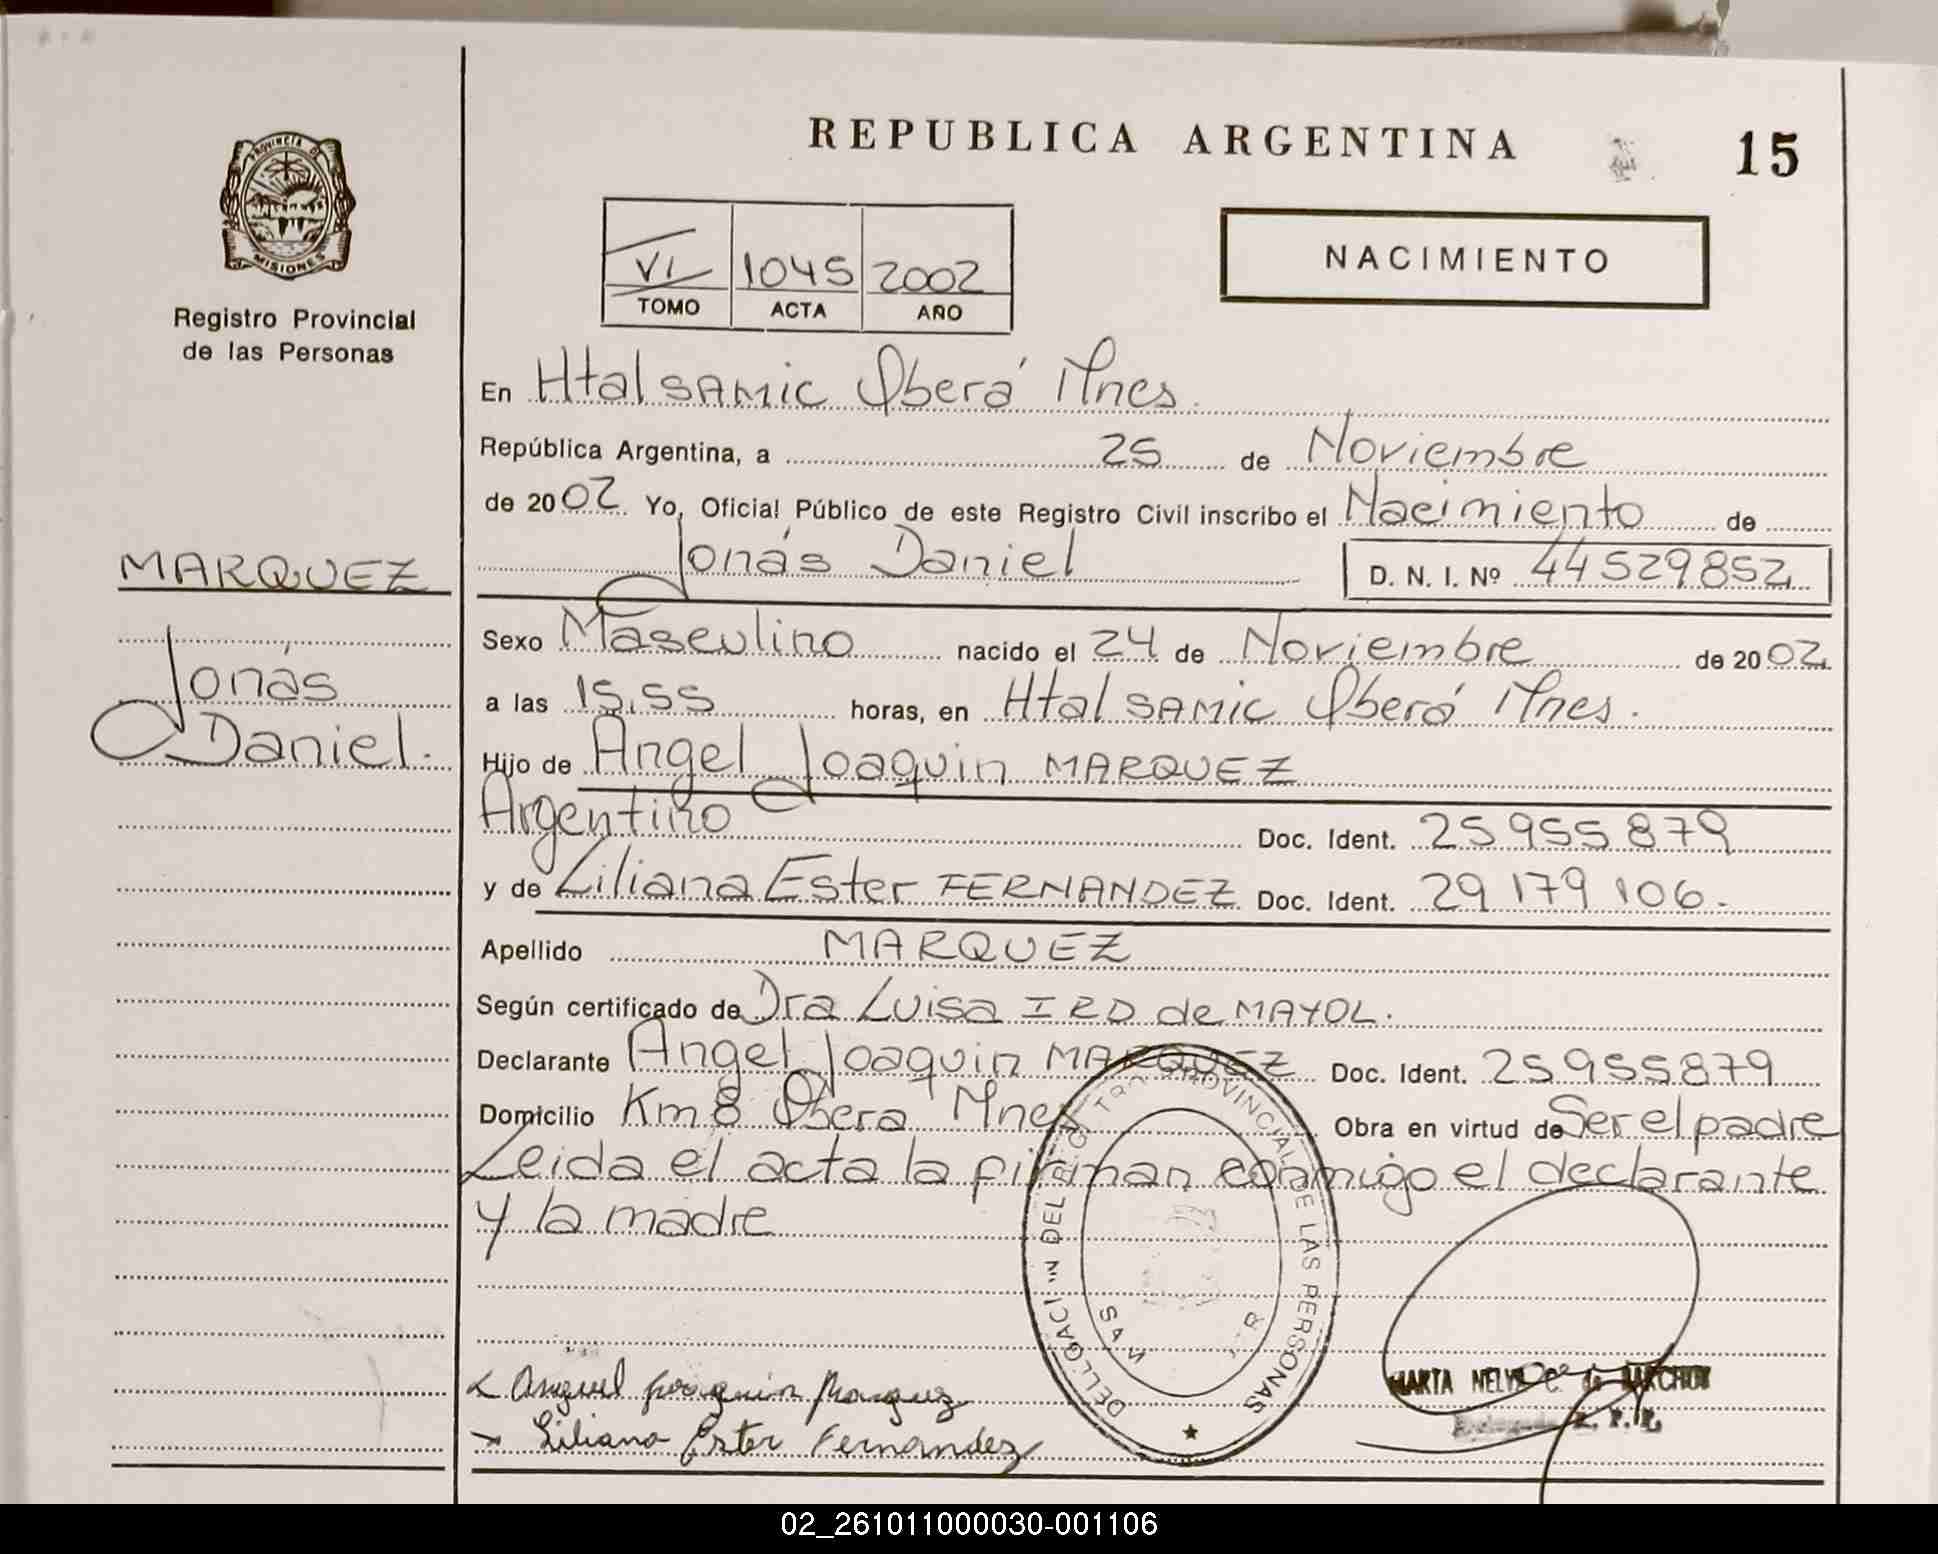 REPUBLICA ARGENTINA
15
PROVINCIA DE
MISIONES
Registro Provincial
de las Personas
VI 1045 2002
TOMO ACTA AÑO
NACIMIENTO
En Htal SAMIC Oberá Mnes.
República Argentina, a 25 de Noviembre
de 2002 Yo, Oficial Público de este Registro Civil inscribo el Nacimiento de
Jonás Daniel D. N. I. Nº 44529852
MARQUEZ
Jonás
Daniel.
Sexo Masculino nacido el 24 de Noviembre de 2002
a las 15.55 horas, en Htal SAMIC Oberá Mnes.
Hijo de Angel Joaquin MARQUEZ
Argentino Doc. Ident. 25955879
y de Liliana Ester FERNANDEZ Doc. Ident. 29179106.
Apellido MARQUEZ
Según certificado de Dra Luisa IRD de MAYOL.
Declarante Angel Joaquin MARQUEZ Doc. Ident. 25955879
Domicilio Km 8 Obera Mnes Obra en virtud de Ser el padre
Leida el acta la firman conmigo el declarante
y la madre
PROVINCIAL DE LAS PERSONAS
MARTA NELY
Angel Joaquin Marquez
Liliana Ester Fernandez
02_261011000030-001106